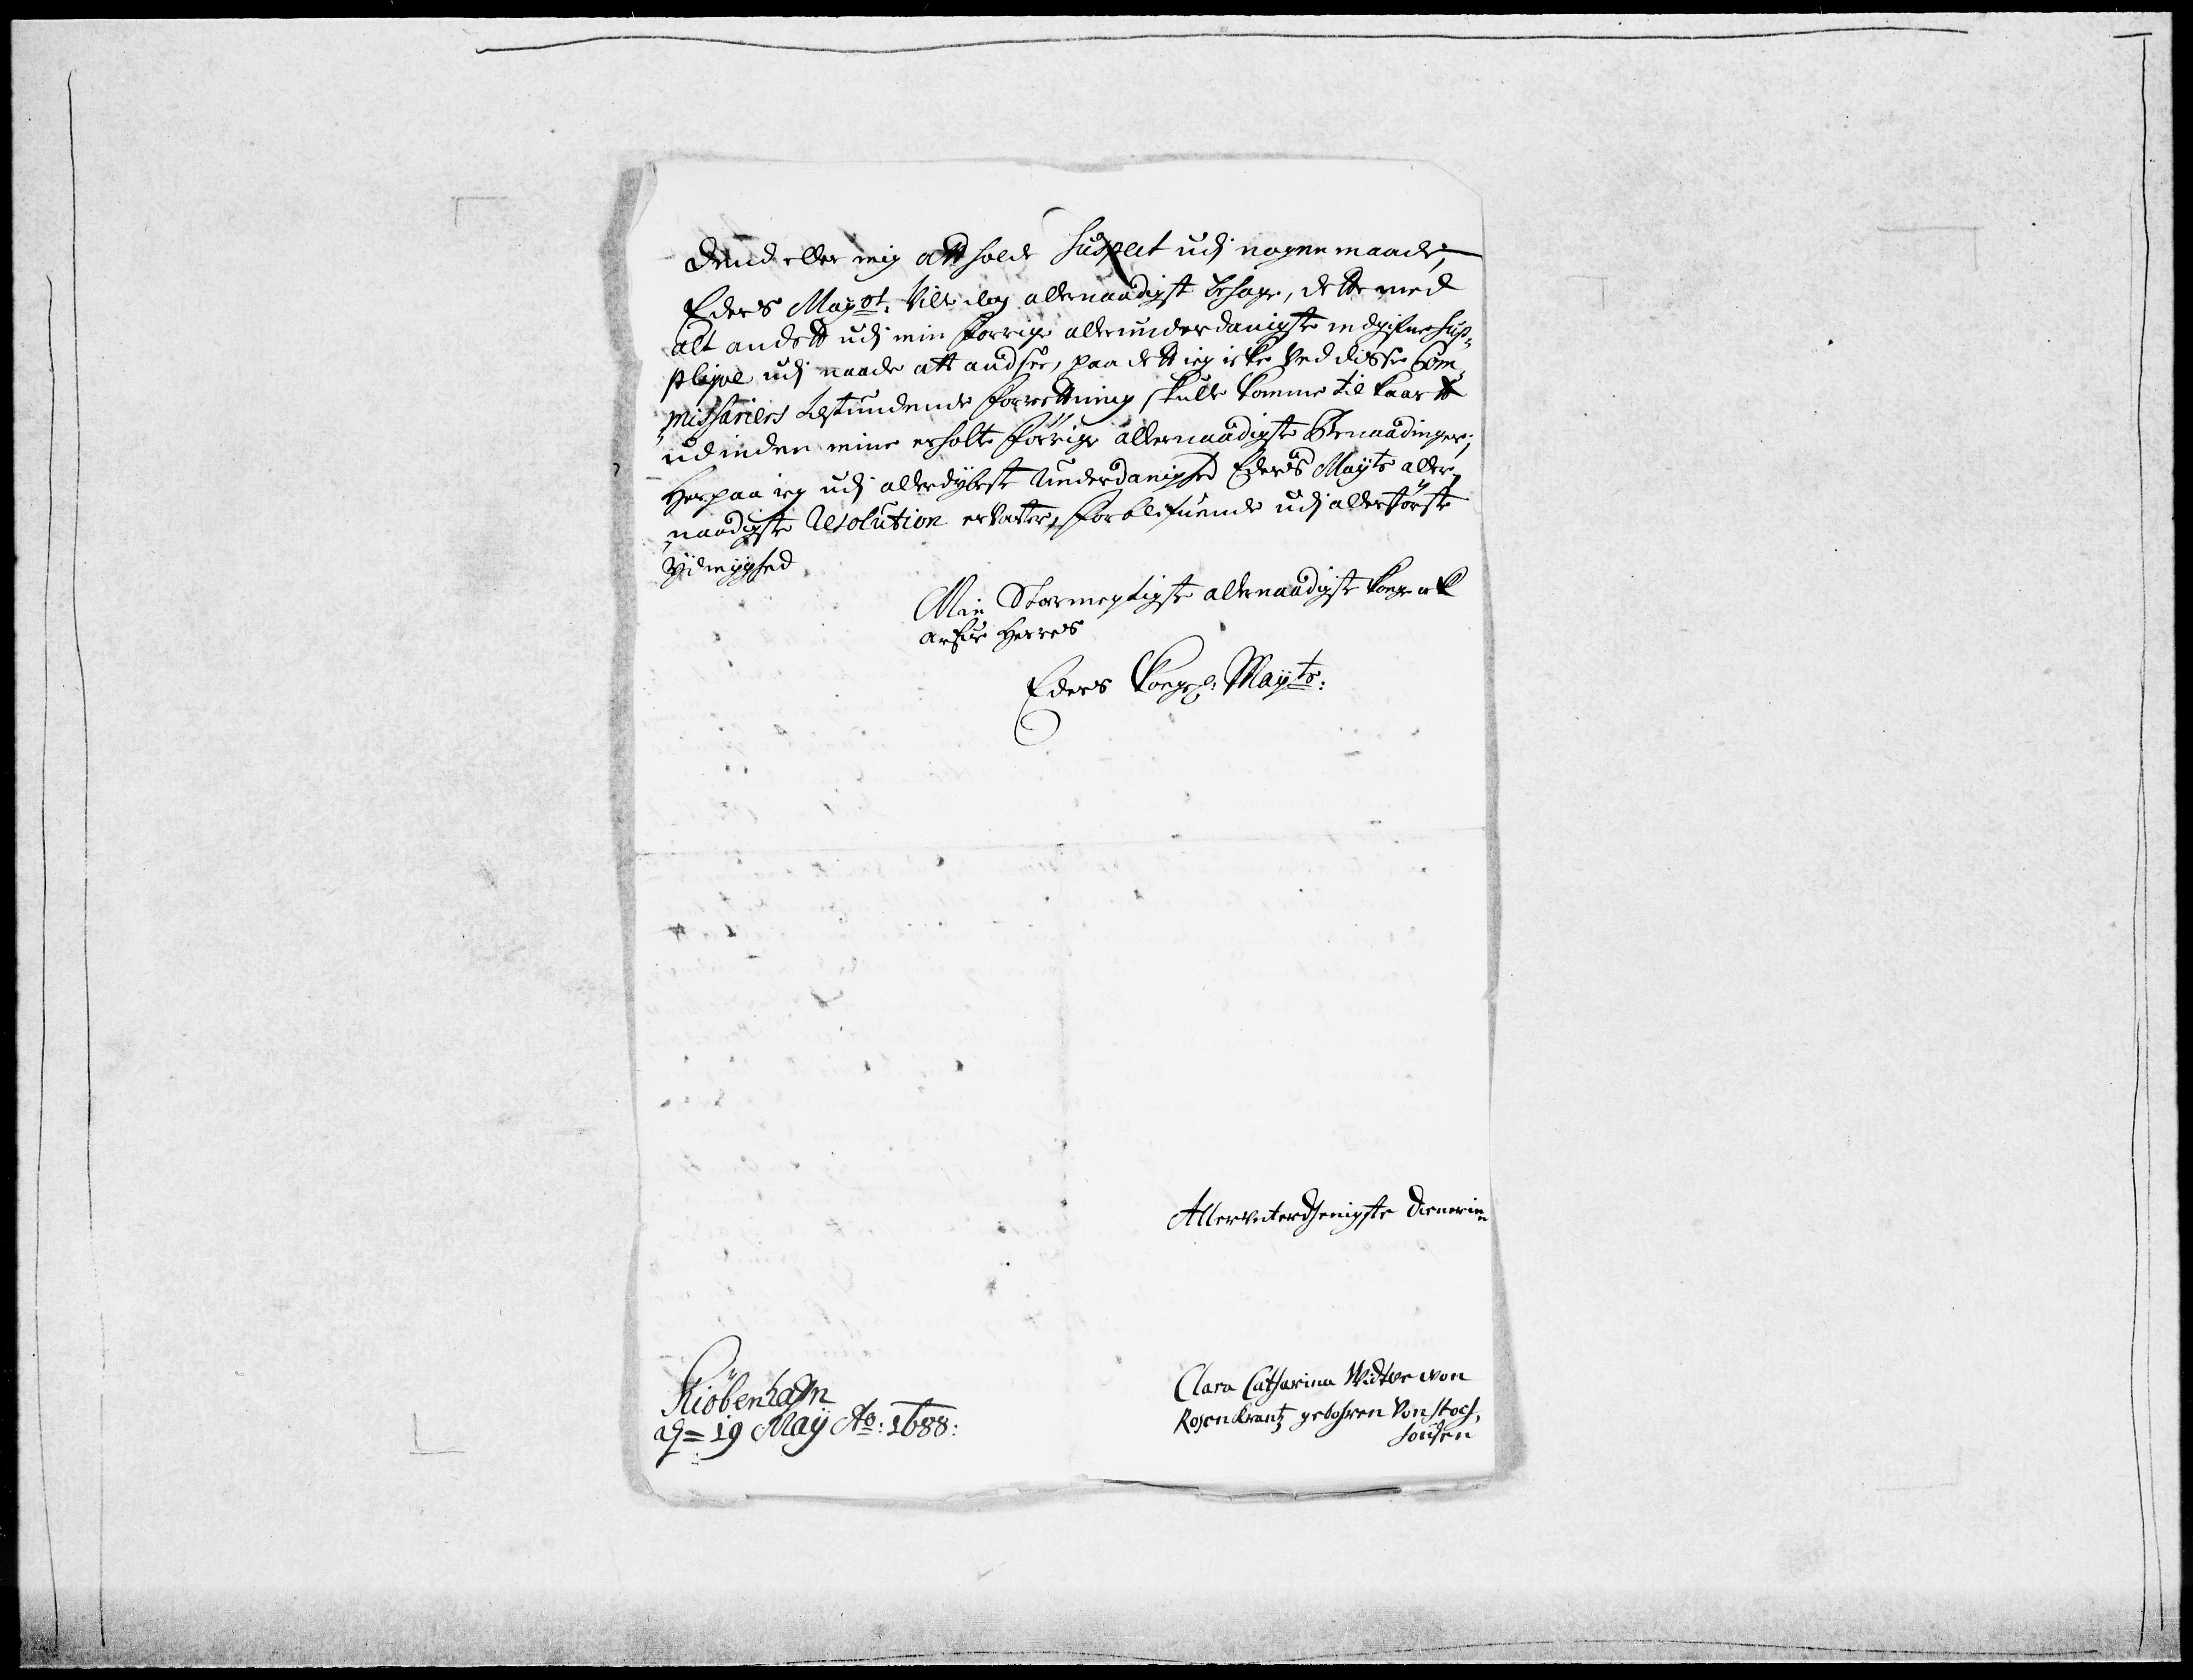 dend eller mig att holde suspect udj nogen maade,
Eders Mayst. Ville dog allernaadigst behage, dette med
alt andett udj min forrige allerunderdanigste indgifne sup„
pliqve udj naade att andsee, paa dett ieg icke ved disse Com„
„missariers tilstundende forrettning skulle komme til kaart
udinden mine erholte forrige allernaadigste Benaadinger;
Herpaa ieg udj allerdybeste Underdanighed Eders Mayts aller„
„naadigste Resolution erVarter, forblifuende udj allerstörste
Ydmyghed
Min Stormegtigste allernaadigste Konge och
arfue Herres
Eders Kongl: Mayts:
Allerunterdhenigste Dienerinn
Kiöbenhafn
d= 19 Maij Ao: 1688:
Clara Catharina Widtwe von
Rosenkrantz gebohren von Stoc,
housen